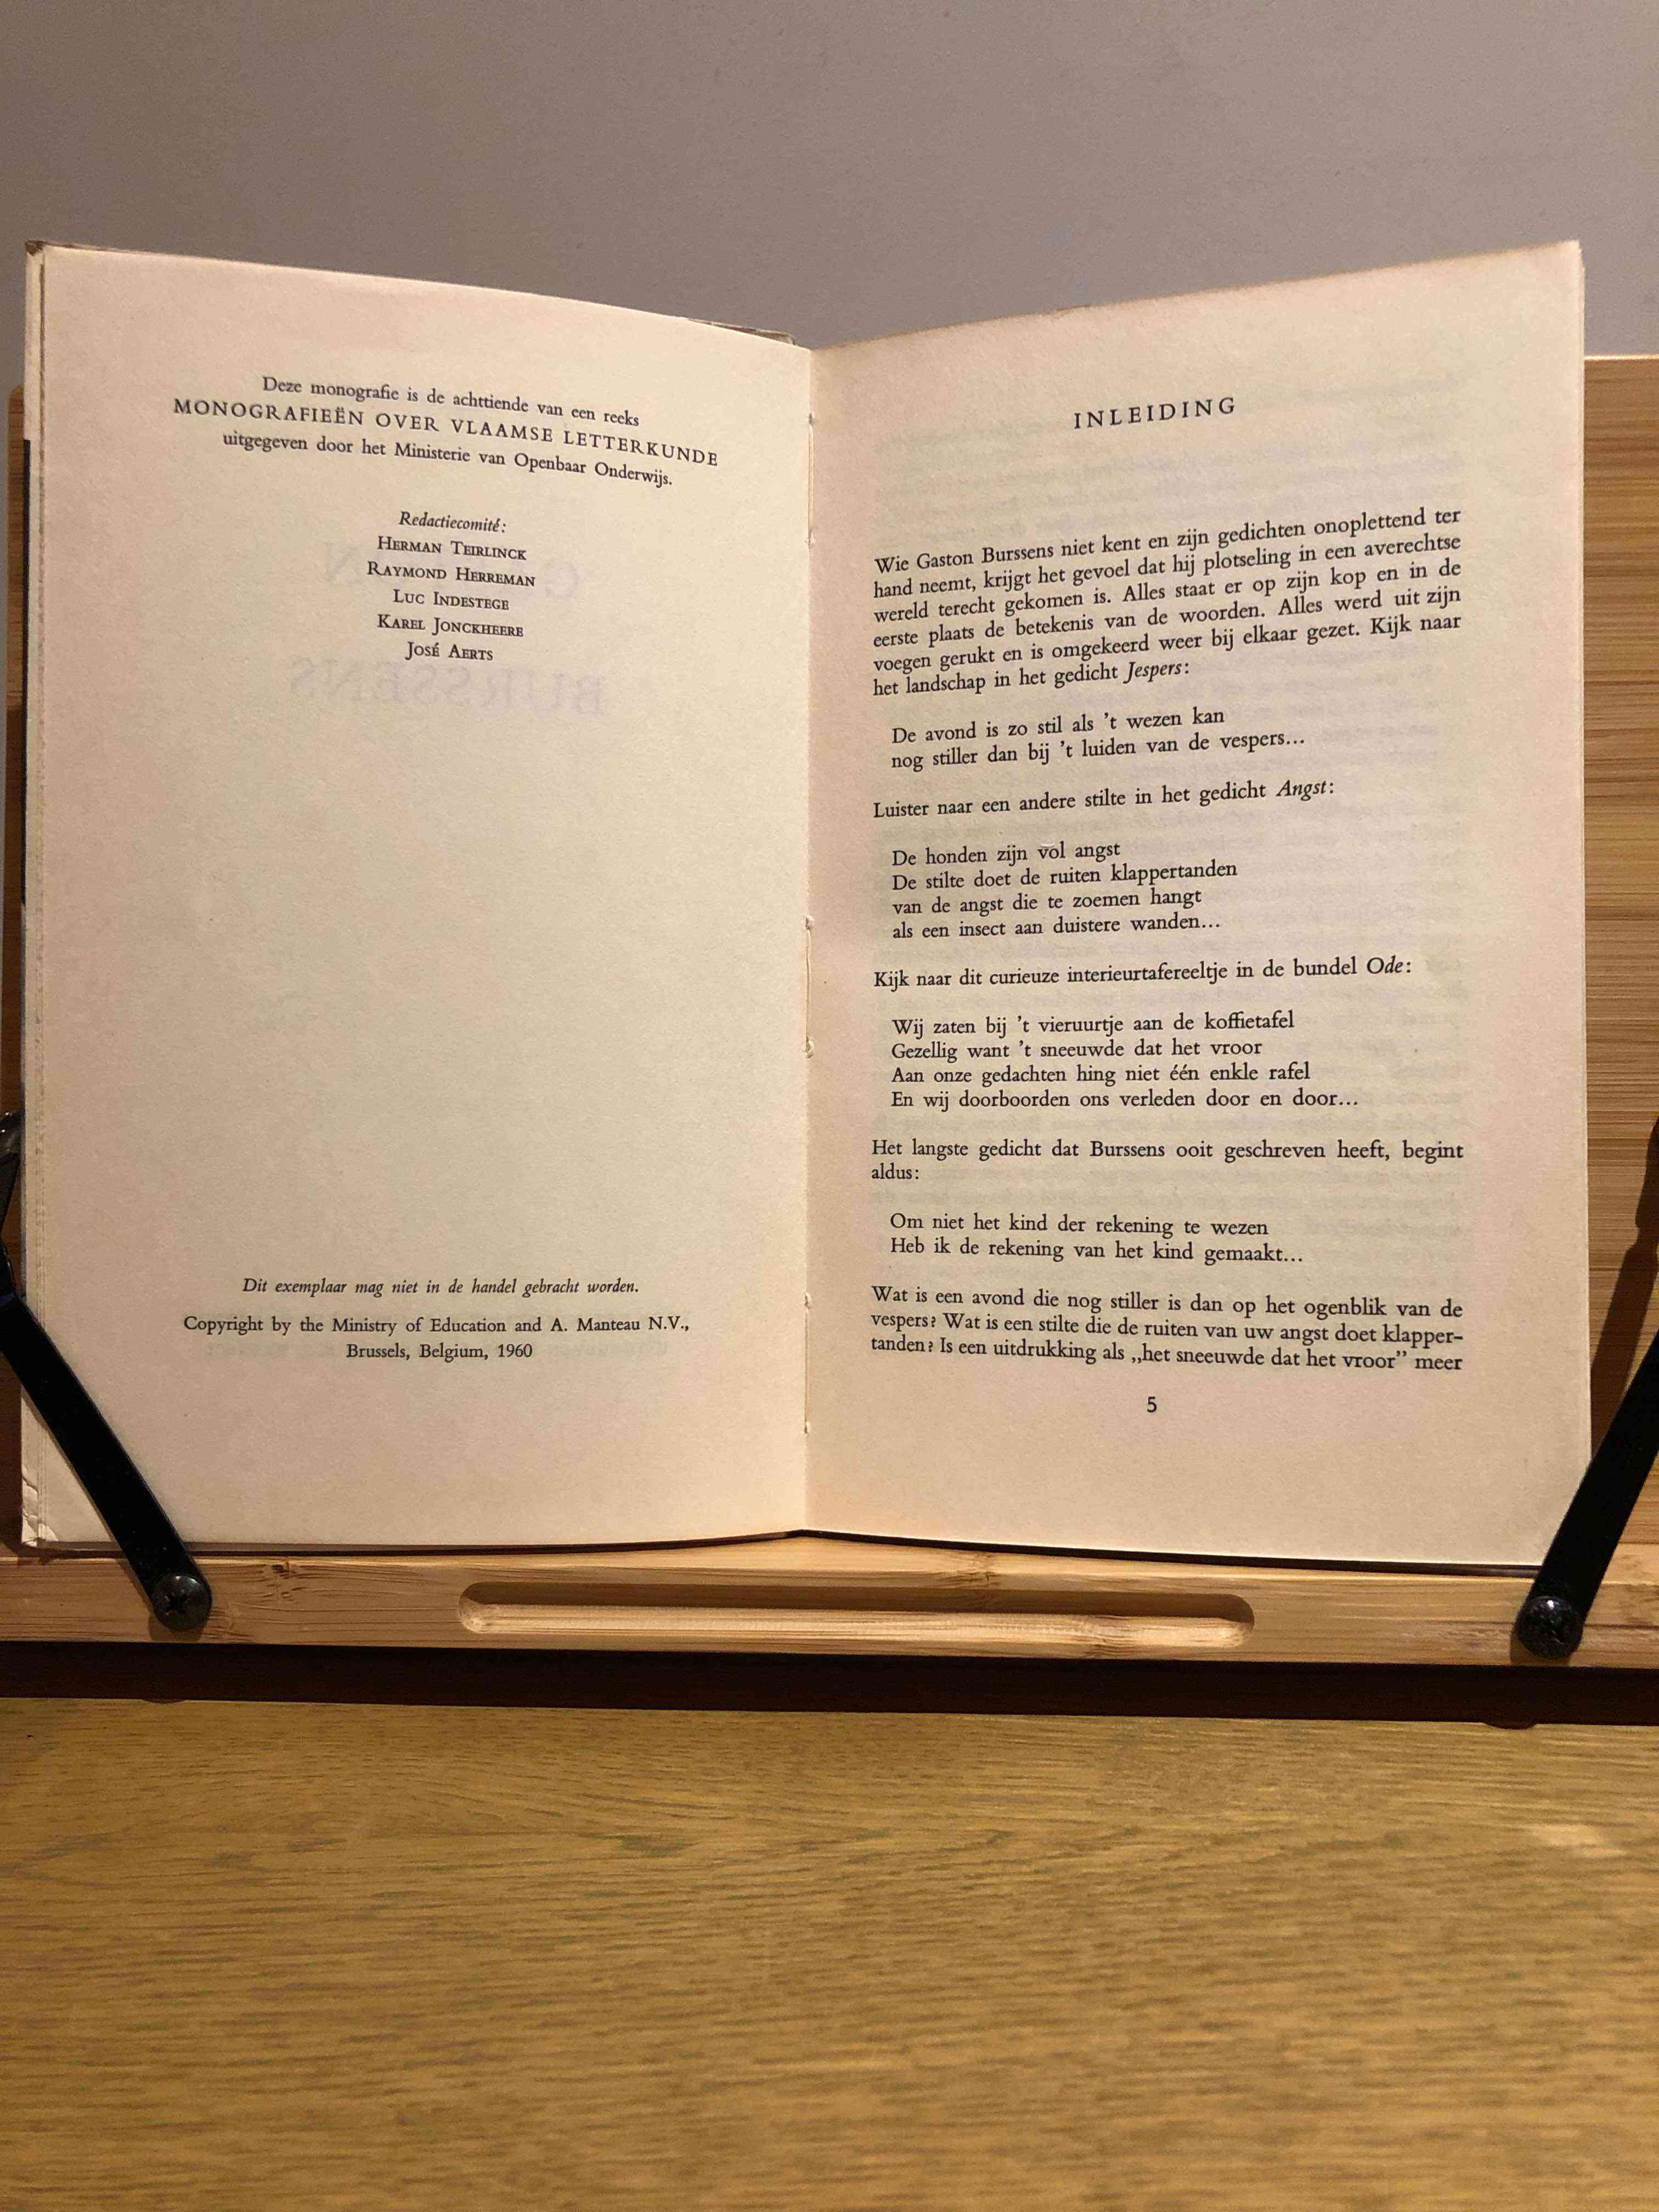 Deze monografie is de achttiende van een reeks
MONOGRAFIEËN OVER VLAAMSE LETTERKUNDE
uitgegeven door het Ministerie van Openbaar Onderwijs.
Redactiecomité:
HERMAN TEIRLINCK
RAYMOND HERREMAN
LUC INDESTEGE
KAREL JONCKHEERE
JOSÉ AERTS
Dit exemplaar mag niet in de handel gebracht worden.
Copyright by the Ministry of Education and A. Manteau N.V.,
Brussels, Belgium, 1960
INLEIDING
Wie Gaston Burssens niet kent en zijn gedichten onoplettend ter
hand neemt, krijgt het gevoel dat hij plotseling in een averechtse
wereld terecht gekomen is. Alles staat er op zijn kop en in de
eerste plaats de betekenis van de woorden. Alles werd uit zijn
voegen gerukt en is omgekeerd weer bij elkaar gezet. Kijk naar
het landschap in het gedicht Jespers:
De avond is zo stil als 't wezen kan
nog stiller dan bij 't luiden van de vespers...
Luister naar een andere stilte in het gedicht Angst:
De honden zijn vol angst
De stilte doet de ruiten klappertanden
van de angst die te zoemen hangt
als een insect aan duistere wanden...
Kijk naar dit curieuze interieurtafereeltje in de bundel Ode:
Wij zaten bij 't vieruurtje aan de koffietafel
Gezellig want 't sneeuwde dat het vroor
Aan onze gedachten hing niet één enkle rafel
En wij doorboorden ons verleden door en door...
Het langste gedicht dat Burssens ooit geschreven heeft, begint
aldus:
Om niet het kind der rekening te wezen
Heb ik de rekening van het kind gemaakt...
Wat is een avond die nog stiller is dan op het ogenblik van de
vespers? Wat is een stilte die de ruiten van uw angst doet klapper-
tanden? Is een uitdrukking als „het sneeuwde dat het vroor” meer
5